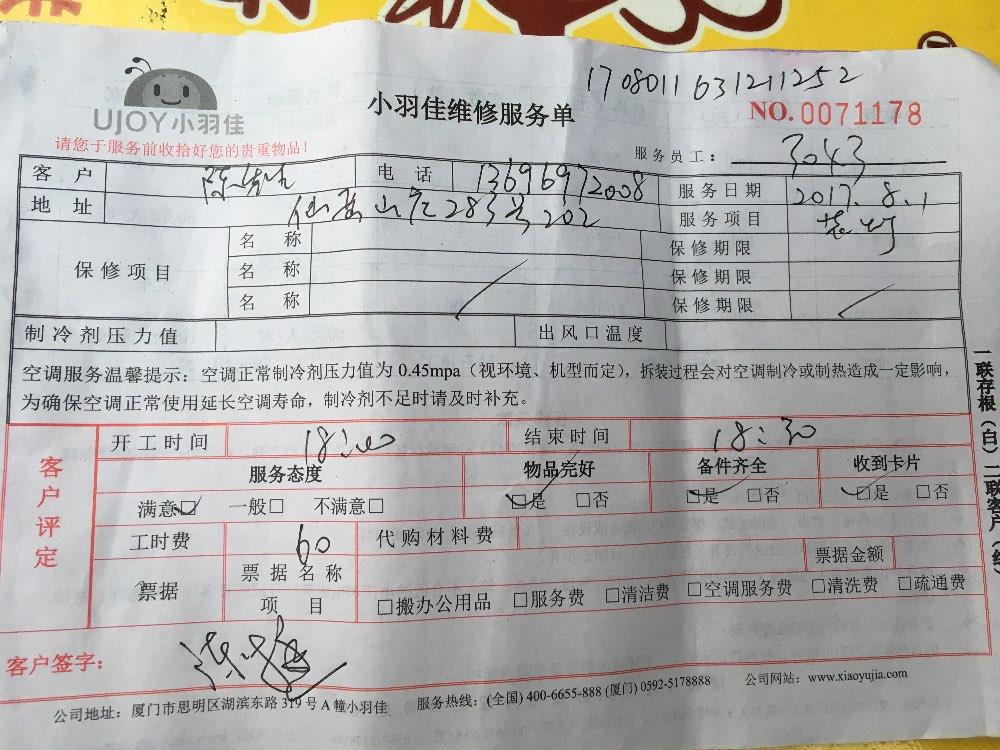 1708011631211252
UJOY小羽佳
小羽佳维修服务单
NO.0071178
请您于服务前收拾好您的贵重物品！
服务员工： 3043
客 户 电 话 13696972008 服务日期 2017.8.1
地 址 仙岳山庄283号202 服务项目 装灯
保修项目
名 称 保修期限
名 称 保修期限
名 称 保修期限
制冷剂压力值 出风口温度
空调服务温馨提示：空调正常制冷剂压力值为 0.45mpa（视环境、机型而定），拆装过程会对空调制冷或制热造成一定影响，
为确保空调正常使用延长空调寿命，制冷剂不足时请及时补充。
客户评定
开工时间 18:00 结束时间 18:30
服务态度 物品完好 备件齐全 收到卡片
满意☑ 一般□ 不满意□ ☑是 □否 ☑是 □否 ☑是 □否
工时费 60 代购材料费
票据 票据名称 票据金额
项 目 □搬办公用品 □服务费 □清洁费 □空调服务费 □清洗费 □疏通费
客户签字：
公司地址：厦门市思明区湖滨东路 319 号 A 幢小羽佳 服务热线：(全国) 400-6655-888 (厦门) 0592-5178888 公司网站：www.xiaoyujia.com
一联存根（白）二联客户（红）